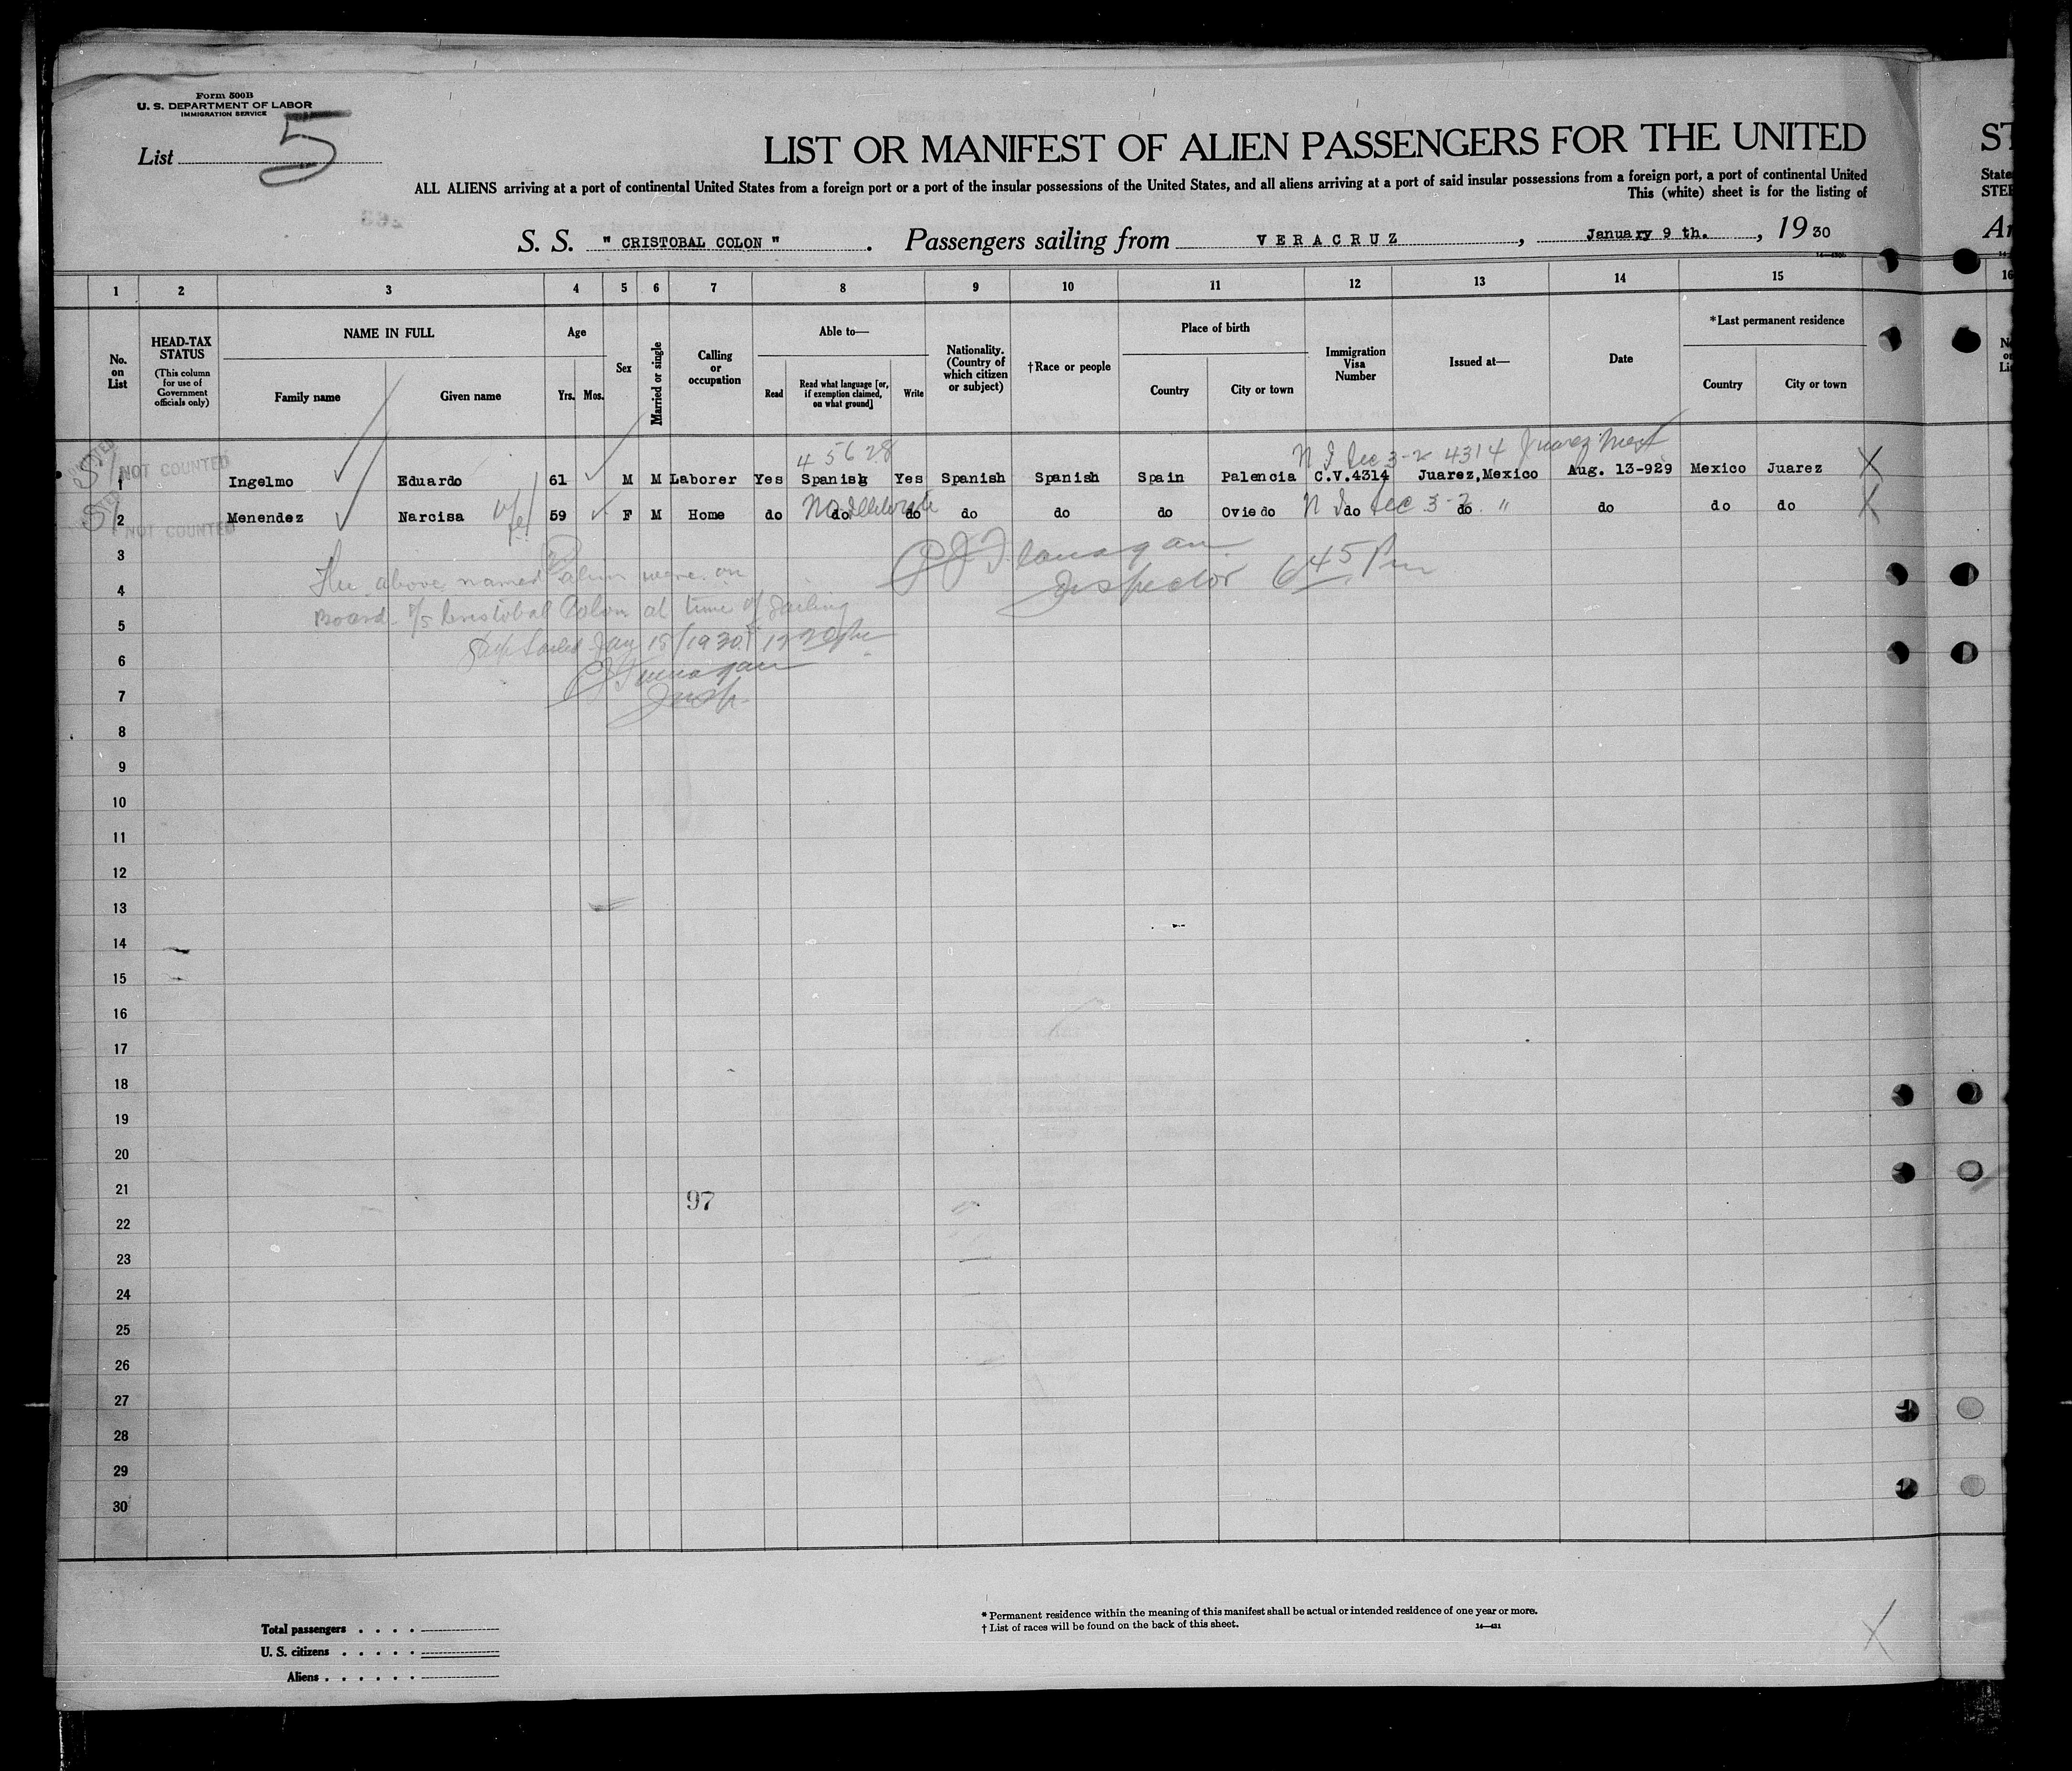 Form 500B
U. S. DEPARTMENT OF LABOR
IMMIGRATION SERVICE
List 5
LIST OR MANIFEST OF ALIEN PASSENGERS FOR THE UNITED
ST
ALL ALIENS arriving at a port of continental United States from a foreign port or a port of the insular possessions of the United States, and all aliens arriving at a port of said insular possessions from a foreign port, a port of continental United
State
This (white) sheet is for the listing of
STEE
S. S. " CRISTOBAL COLON ". Passengers sailing from VERACRUZ, January 9 th., 1930
Ar
1 2 3 4 5 6 7 8 9 10 11 12 13 14 15 16
No. on List
HEAD-TAX STATUS
(This column for use of Government officials only)
NAME IN FULL
Family name Given name
Age
Yrs. Mos.
Sex
Married or single
Calling or occupation
Able to—
Read
Read what language [or, if exemption claimed, on what ground]
Write
Nationality. (Country of which citizen or subject)
†Race or people
Place of birth
Country City or town
Immigration Visa Number
Issued at—
Date
*Last permanent residence
Country City or town
45628
4314 Juarez Mex
NOT COUNTED
1 Ingelmo Eduardo 61 M M Laborer Yes Spanish Yes Spanish Spanish Spain Palencia C.V.4314 Juarez,Mexico Aug. 13-929 Mexico Juarez X
2 Menendez Narcisa 59 F M Home do do do do do do Oviedo do do do do do X
NOT COUNTED
3
The above named aliens were on
Inspector 6 45 Pm
4
Board S/S Cristobal Colon at time of Sailing
5
Ship Sailed Jan 15/1930
6
Insp.
7
8
9
10
11
12
13
14
15
16
17
18
19
20
21
97
22
23
24
25
26
27
28
29
30
* Permanent residence within the meaning of this manifest shall be actual or intended residence of one year or more.
† List of races will be found on the back of this sheet.
14—431
Total passengers
U. S. citizens
Aliens
X